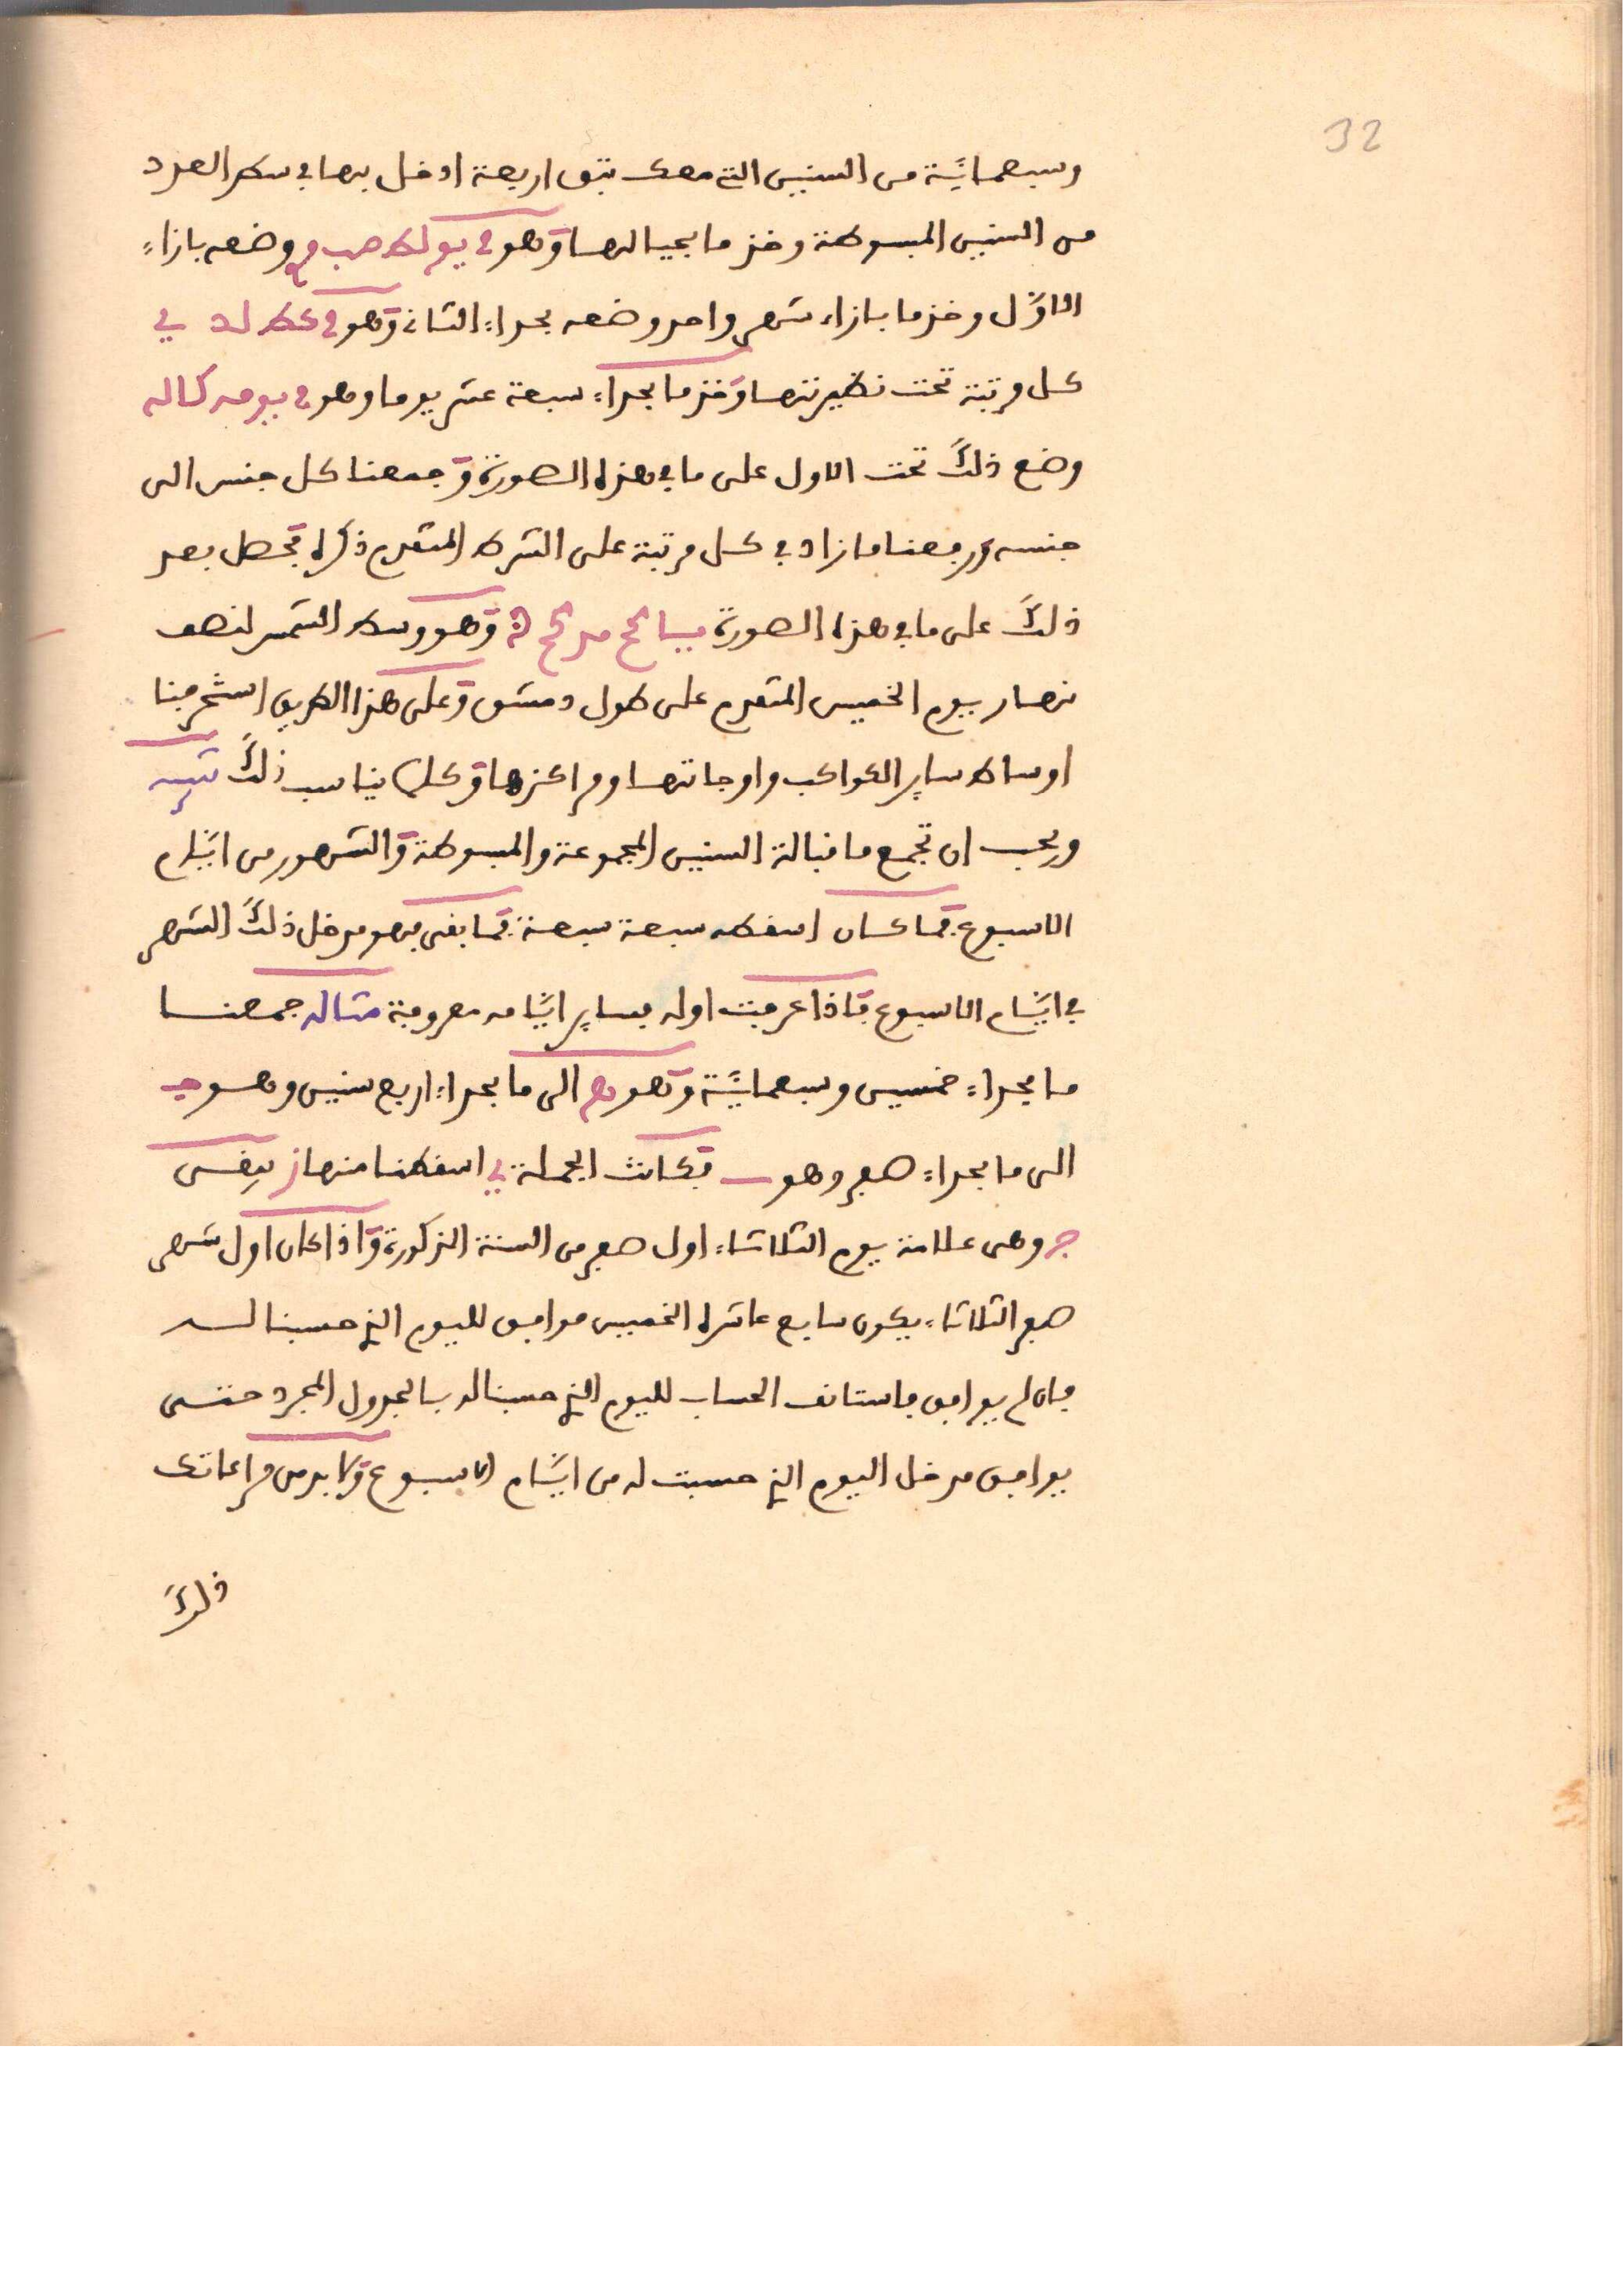 32
وسبعمائة من السنين التي معك تبق اربعة ادخل بها في سطر العدد
من السنين المبسوطة وخذ ما بحيالها وهو في يو لط مب م وضعه بازاء
الاول وخذ ما بازاء شهر واحد وضعه بحداء الثاني وهو في كط لد ي
كل مرتبة تحت نظيرتها وخذ ما بحداء سبعة عشر يوما وهو في يو مه كا له
وضع ذلك تحت الاول على ما في هذه الصورة وجمعنا كل جنس الى
جنسه ورفعنا ما زاد في كل مرتبة على الشرط المتقدم ذكره فحصل بعد
ذلك على ما في هذه الصورة وهو وسط الشمس لنصف
نهار يوم الخميس المتقدم على طول دمشق وعلى هذا الطريق استخرجنا
اوساط ساير الكواكب واوجاتها ومراكزها وكلما يناسب ذلك تنبيه
ويجب ان تجمع ما قبالة السنين المجموعة والمبسوطة والشهور من ايام
الاسبوع فما كان اسقطه سبعة سبعة فما بقى فهو مدخل ذلك الشهر
في ايام الاسبوع فاذا عرفت اوله فساير ايامه معروفة مثاله جمعنا
ما بحداء خمسين وسبعمائة وهو ه الى ما بحداء اربع سنين وهو ج
الى ما بحداء صفر وهو ب فكانت الجملة ي اسقطنا منها ز بقى
ج وهى علامة يوم الثلاثاء اول صفر من السنة المذكورة واذا كان اول شهر
صفر الثلاثاء يكون سابع عاشره الخميس موافق لليوم الذي حسبنا له
فان لم يوافق فاستانف الحساب لليوم الذي حسبنا له بالجدول المجرد حتى
يوافق مدخل اليوم الذي حسبت له من ايام الاسبوع ولا بد من مراعاتك
ذلك